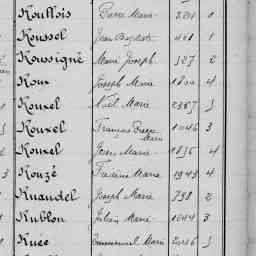 Roullois Pierre Marie 221 1
Roussel Jean Baptiste 461 1
Roussigné Marie Joseph 327 2
Roux Joseph Marie 1800 4
Rouxel Noël Marie 2387 3
Rouxel François Pierre Marie 1046 3
Rouxel Jean Marie 1836 4
Rouzé Frédéric Marie 1943 4
Ruaudel Joseph Marie 798 2
Rublon Julien Marie 1044 3
Ruée Emmanuel Marie